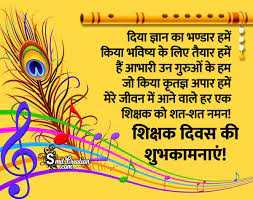 दिया ज्ञान का भण्डार हमें
किया भविष्य के लिए तैयार हमें
हैं आभारी उन गुरुओं के हम
जो किया कृतज्ञ अपार हमें
मेरे जीवन में आने वाले हर एक
शिक्षक को शत-शत नमन!
शिक्षक दिवस की
शुभकामनाएं!
SmitCreation
.com